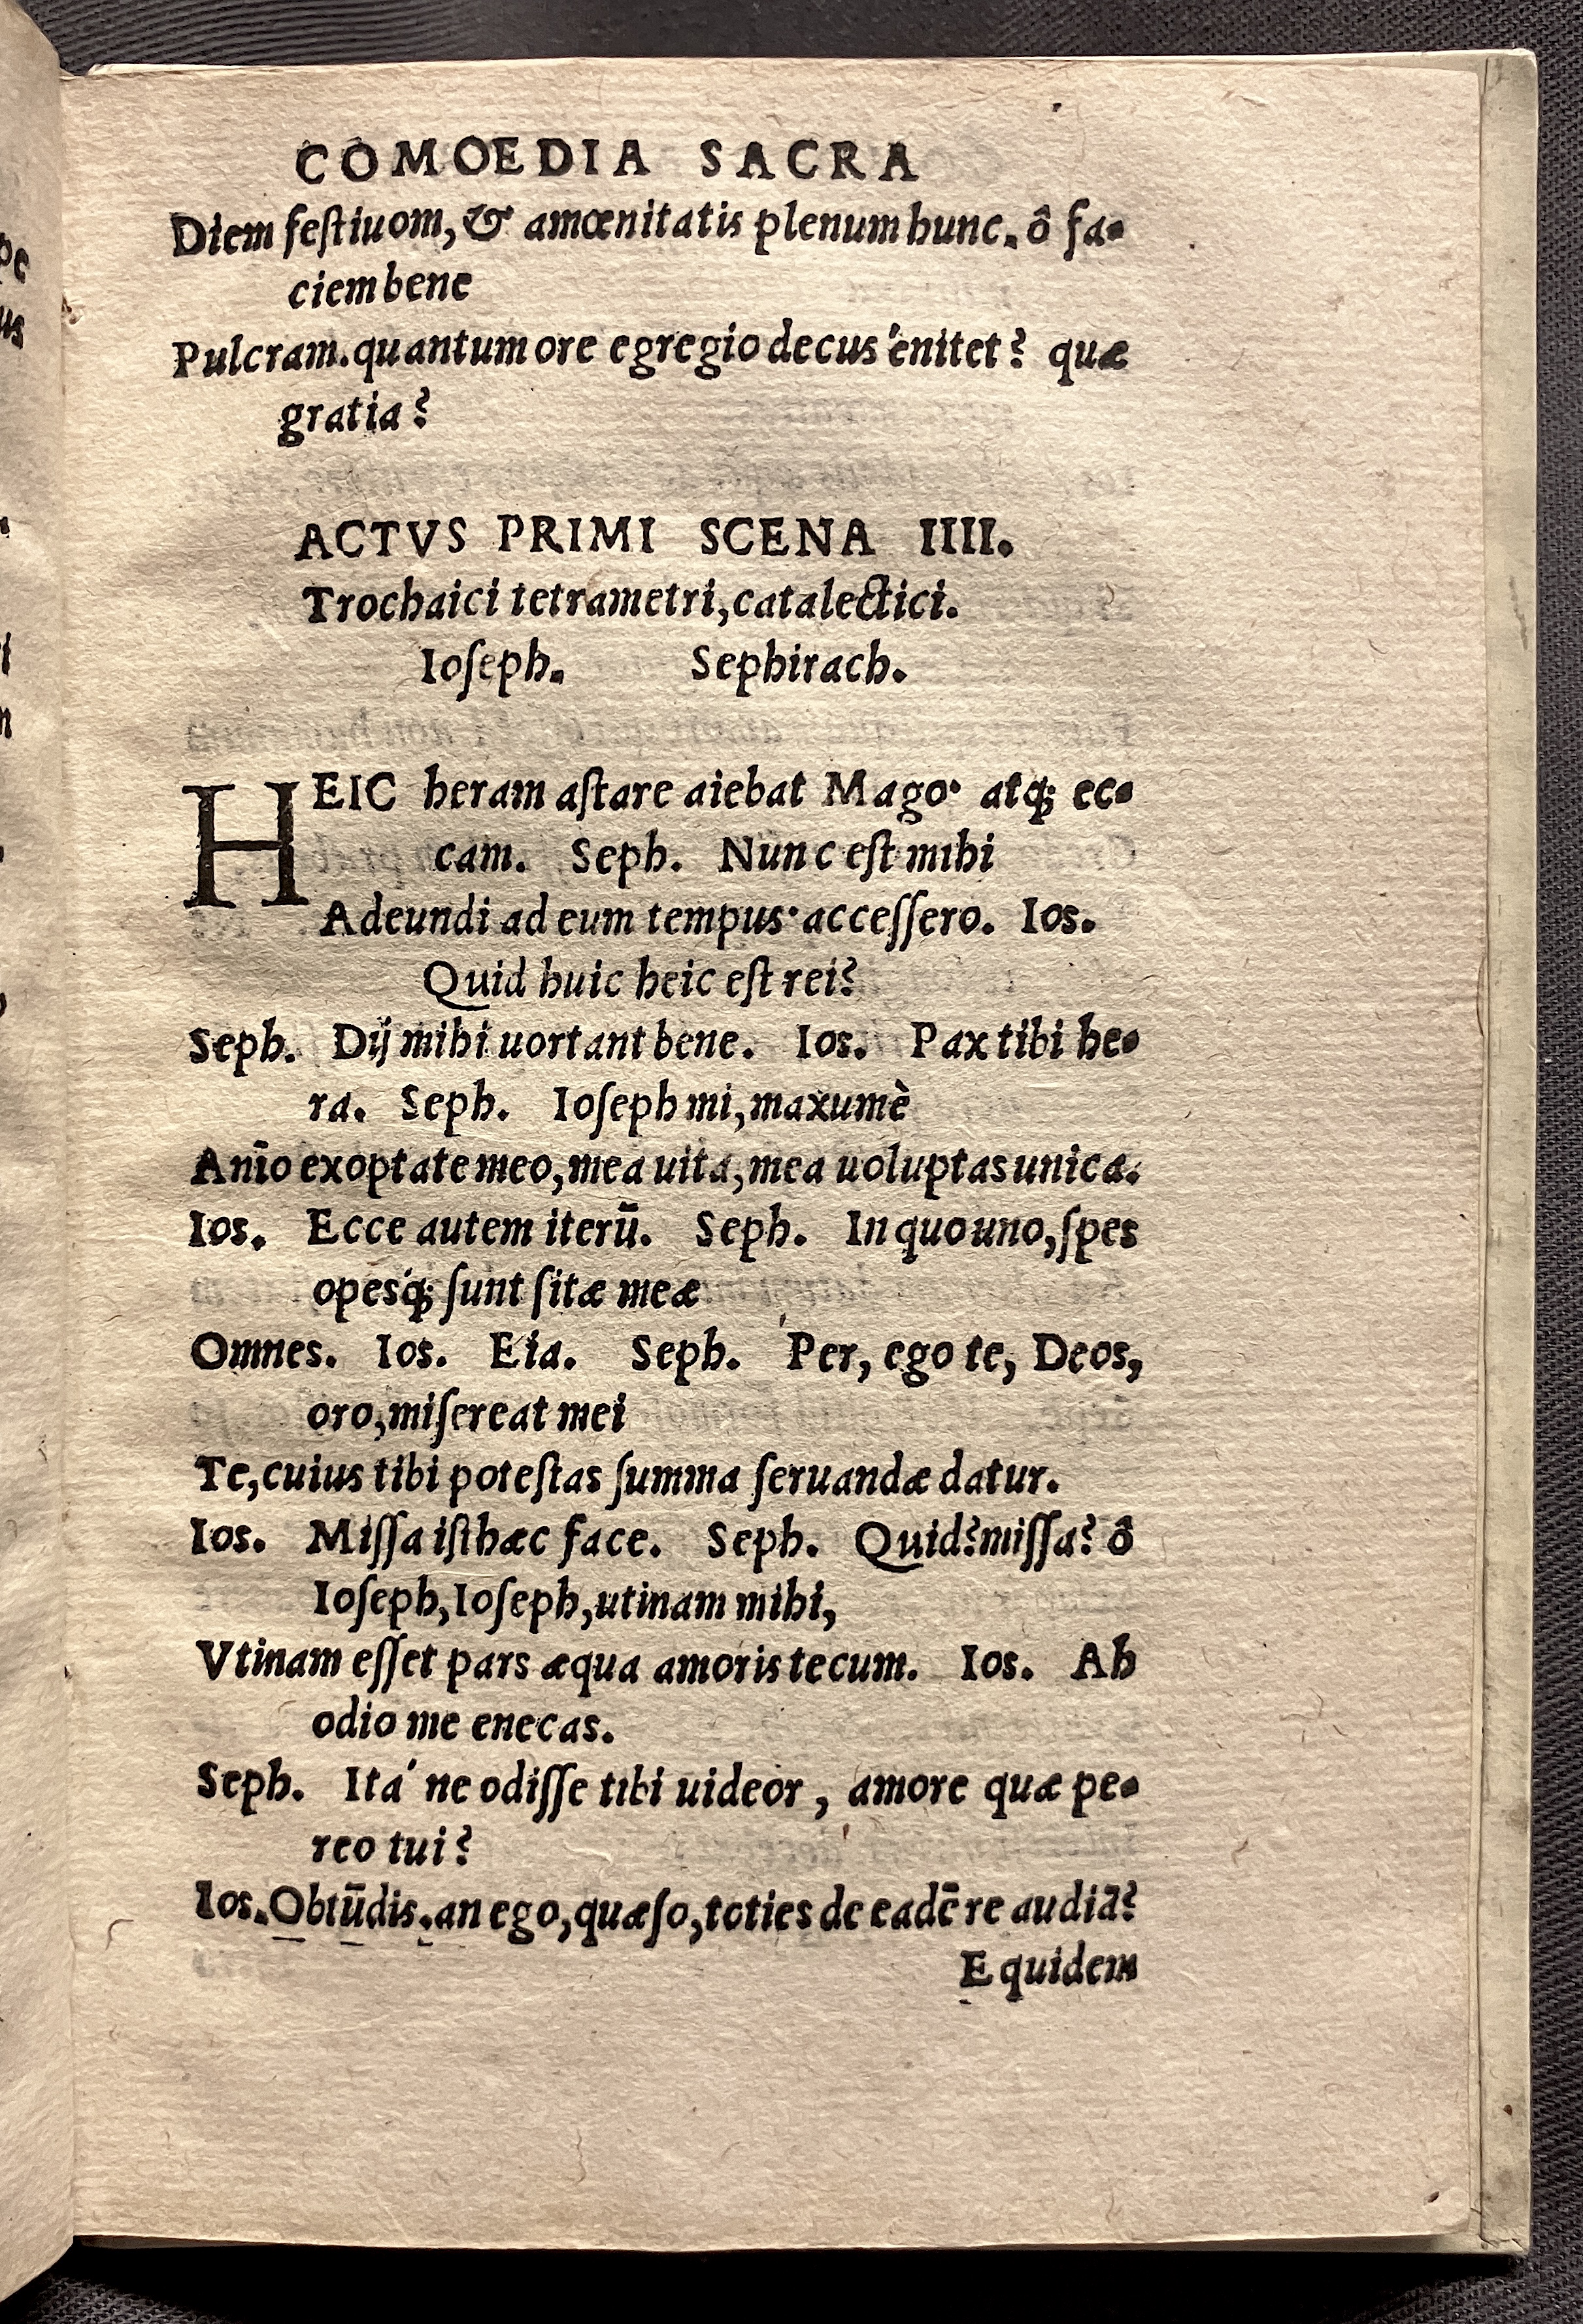 COMOEDIA SACRA
Diem feſtiuom, & amœnitatis plenum hunc. ô fa-
ciem bene
Pulcram. quantum ore egregio decus énitet? quæ
gratia?
ACTVS PRIMI SCENA IIII.
Trochaici tetrametri, catalectici.
Ioſeph. Sephirach.
HEIC heram aſtare aiebat Mago· atq; ec-
cam. Seph. Nunc eſt mihi
Adeundi ad eum tempus· acceſſero. Ios.
Quid huic heic eſt rei?
Seph. Dij mihi uortant bene. Ios. Pax tibi he-
ra. Seph. Ioſeph mi, maxumè
Anīo exoptate meo, mea uita, mea uoluptas unica.
Ios. Ecce autem iterū. Seph. In quo uno, ſpes
opesq́; ſunt ſitæ meæ
Omnes. Ios. Eia. Seph. Per, ego te, Deos,
oro, miſereat mei
Te, cuius tibi poteſtas ſumma ſeruandæ datur.
Ios. Miſſa iſthæc face. Seph. Quid? miſſa? ô
Ioſeph, Ioſeph, utinam mihi,
Vtinam eſſet pars æqua amoris tecum. Ios. Ah
odio me enecas.
Seph. Itá ne odiſſe tibi uideor, amore quæ pe-
reo tui?
Ios. Obtūdis. an ego, quæſo, toties de eadē re audiā?
Equidem